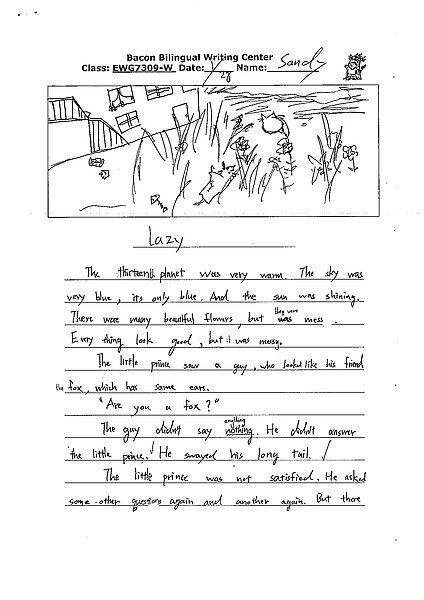 Bacon Bilingual Writing Center
Class: EWG7309-W Date: 1/28 Name: Sandy
lazy
The thirteenth planet was very warm. The sky was
very blue, its only blue. And the sun was shining.
they were
There were many beautiful flowers, but was mess.
Every thing look good, but it was messy.
The little prince saw a guy, who looked like his friend
the fox, which has same ears.
"Are you a fox?"
anything
The guy didn't say nothing. He didn't answer
the little prince. He swayed his long tail.
The little prince was not satisfied. He asked
some other questions again and another again. But there